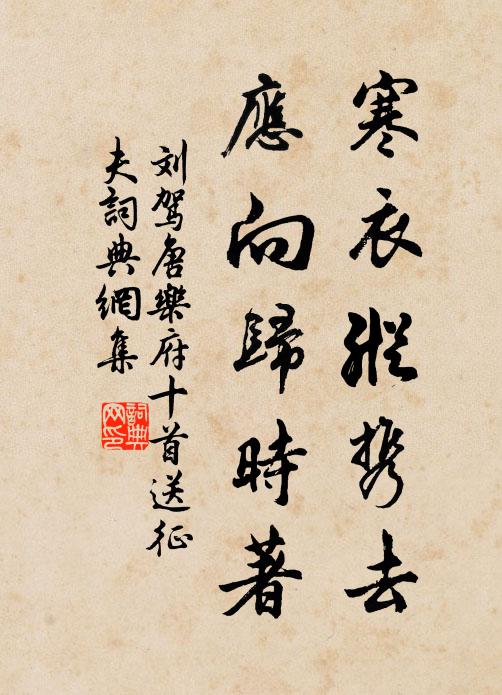 寒衣縱携去
應向歸時著
刘驾唐樂府十首送征
夫詞典網集
詞典
网印